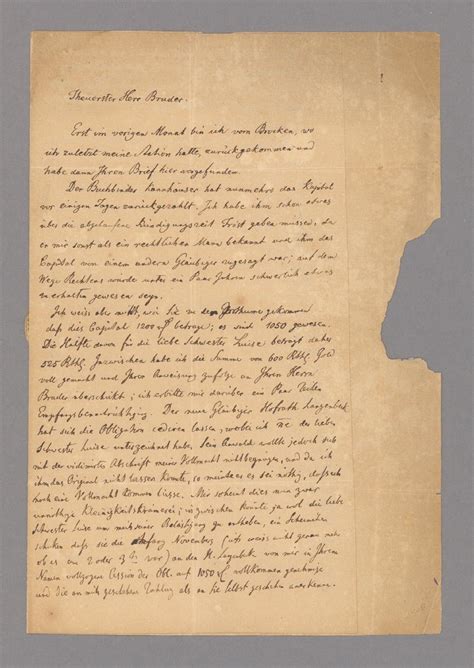 Theuerster Herr Bruder.
Erst im vorigen Monat bin ich vom Brocken, wo
ich zuletzt meine Station hatte, zurückgekommen und
habe dann Ihren Brief hier vorgefunden.
Der Buchbinder hat nunmehro das Kapital
vor einigen Tagen zurückgezahlt. Ich habe ihm schon etwas
über die abgelaufene Kündigungszeit Frist geben müssen, da
er mir sonst als ein rechtlicher Mann bekannt und ihm das
Capital von einem andern Gläubiger zugesagt war; auf dem
Wege Rechtens würde unter ein Paar Jahren schwerlich etwas
zu erhalten gewesen seyn.
Ich weiss aber nicht, wie Sie zu dem Irrthume gekommen
dass dies Capital 1200 betrage; es sind 1050 gewesen.
Die Hälfte davon für die liebe Schwester Luise beträgt daher
525 Rthlr. Inzwischen habe ich die Summe von 600 Rthlr Gold
voll gemacht und Ihrer Anweisung zufolge an Ihren Herrn
Bruder überschickt; ich erbitte mir darüber ein Paar Zeilen
Empfangsbenachrichtigung. Der neue Gläubiger Hofrath Langenbeck
hat sich die Obligation cediren lassen, wobei ich die der lieben
Schwester Luise unterzeichnet habe. Sein Anwald wollte jedoch sich
mit der vidimirten Abschrift meiner Vollmacht nicht begnügen, und da ich
ihm das Original nicht lassen konnte, so meinte er es sei nöthig, dass ich
noch eine Vollmacht kommen liesse. Mir scheint dies nun zwar
unnöthige Kleinigkeitskrämerei; inzwischen könnte ja wol die liebe
Schwester Luise um mich einer Belästigung zu entheben, ein
schicken dass sie die Anfang November (ich weiss nicht genau mehr
ob es am 2 oder 3t war) an den H. Langenbeck von mir in Ihrem
Namen vollzogene Cession der Obl. auf 1050 vollkommen genehmige
und die an mich geschehene Zahlung als an sie selbst geschehen anerkenne.